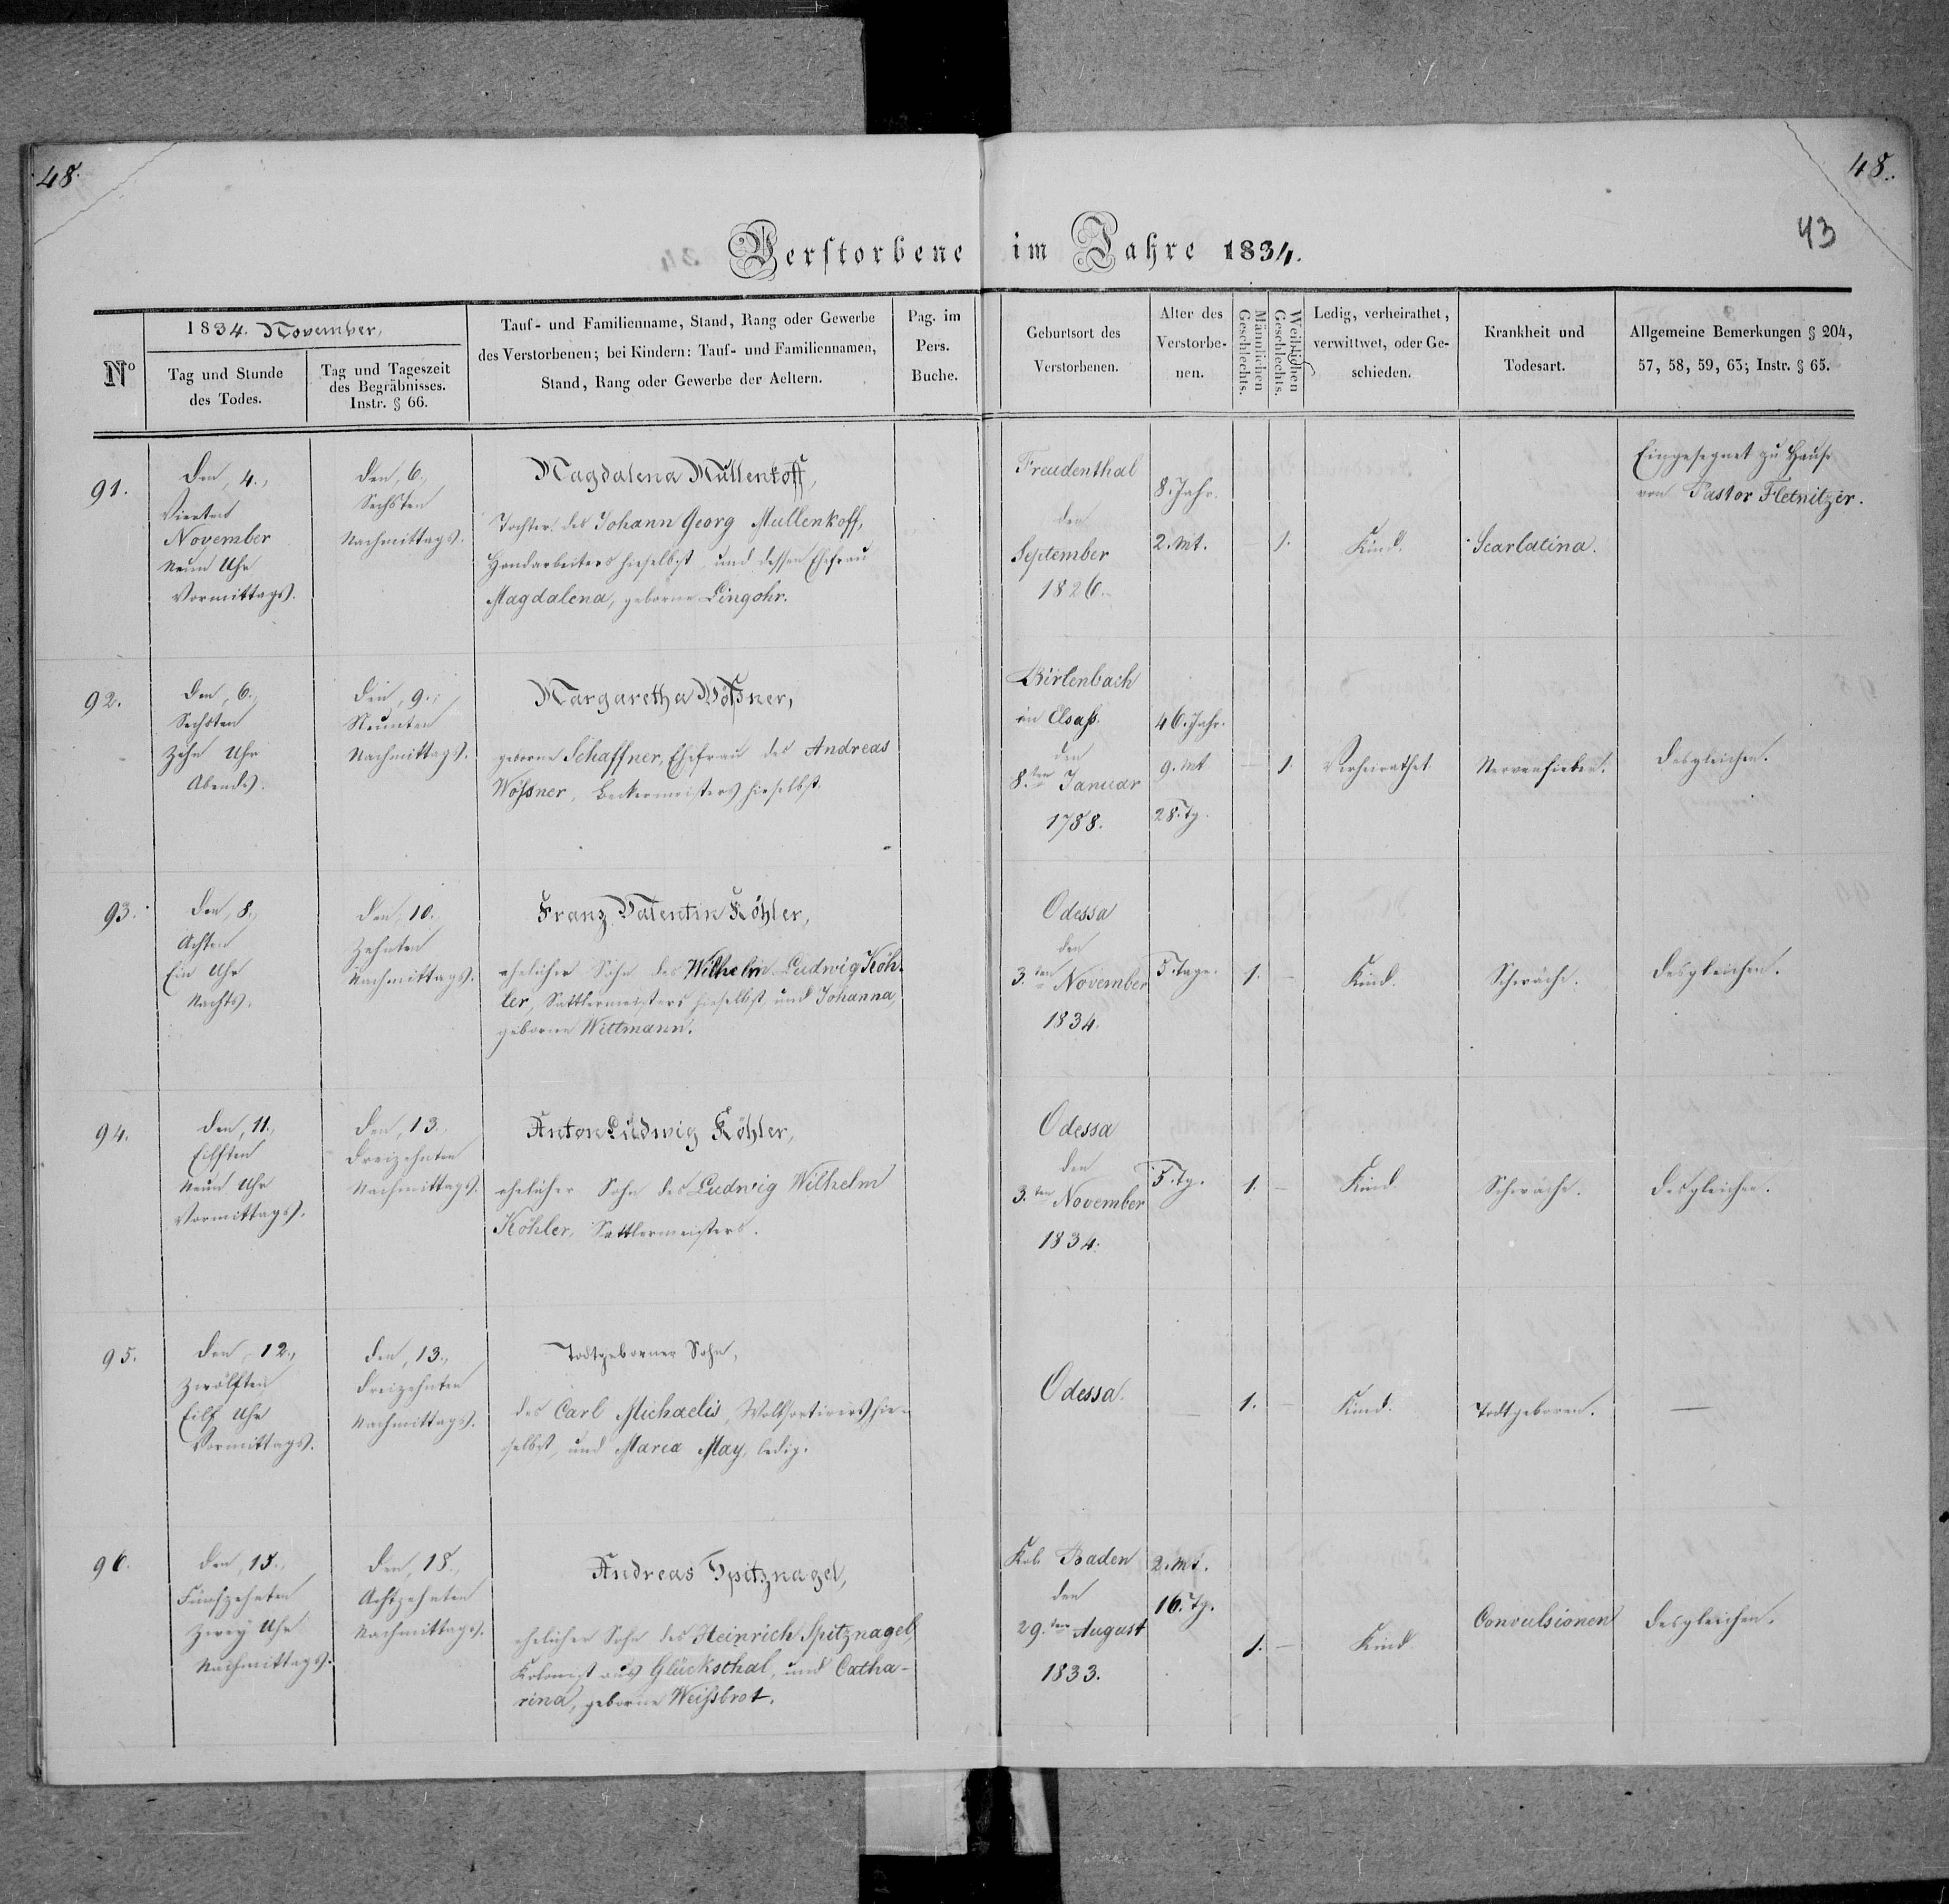 48.
48.
43
Verstorbene im Jahre 1834.
Nº
1834. November,
Tag und Stunde
des Todes.
Tag und Tageszeit
des Begräbnisses.
Instr. § 66.
Tauf- und Familienname, Stand, Rang oder Gewerbe
des Verstorbenen; bei Kindern: Tauf- und Familiennamen,
Stand, Rang oder Gewerbe der Aeltern.
Pag. im
Pers.
Buche.
Geburtsort des
Verstorbenen.
Alter des
Verstorbe-
nen.
Männlichen
Geschlechts.
Weiblichen
Geschlechts.
Ledig, verheirathet,
verwittwet, oder Ge-
schieden.
Krankheit und
Todesart.
Allgemeine Bemerkungen § 204,
57, 58, 59, 63; Instr. § 65.
91.
Den, 4.,
Vierten
November
Neun Uhr
Vormittags.
Den, 6.,
Sechsten
Nachmittags.
Magdalena Mullenkoff,
Tochter des Johann Georg Mullenkoff,
Handarbeiters hieselbst, und dessen Ehefrau
Magdalena, geborne Lingohr.
Freudenthal
den
September
1826.
8. Jahr.
2. Mt.
—
1.
Kind.
Scarlatina.
Eingesegnet zu Hause
von Pastor Fletnitzer.
92.
Den, 6.,
Sechsten
Zehn Uhr
Abends.
Den, 9.,
Neunten
Nachmittags.
Margaretha Wößner,
geborne Schaffner, Ehefrau des Andreas
Wößner, Beckermeisters hieselbst.
Birlenbach
in Elsaß.
den
8.ten Januar
1788.
46. Jahr.
9. Mt
28. Tg.
—
1.
Verheirathet
Nervenfieber.
Desgleichen.
93.
Den, 8.,
Achten
Ein Uhr
Nachts.
Den, 10.,
Zehnten
Nachmittags.
Franz Valentin Köhler,
ehelicher Sohn des Wilhelm Ludwig Köh-
ler, Sattlermeisters hieselbst, und Johanna,
geborne Wittmann.
Odessa
den
3.ten November
1834.
5. Tage.
1.
—
Kind.
Schwäche.
Desgleichen.
94.
Den, 11.,
Eilften
Neun Uhr
Vormittags.
Den, 13.,
Dreizehnten
Nachmittags.
Anton Ludwig Köhler,
ehelicher Sohn des Ludwig Wilhelm
Köhler, Sattlermeisters.
Odessa
den
3.ten November
1834.
5. Tg.
1.
—
Kind
Schwäche.
Desgleichen.
95.
Den, 12.,
Zwölften
Eilf Uhr
Vormittags.
Den, 13.,
Dreizehnten
Nachmittags.
Todtgeborner Sohn,
des Carl Michaelis, Wollsortirers hie-
selbst, und Maria May, ledig.
Odessa.
—
1.
—
Kind.
Todtgeboren.
—
96.
Den, 15.,
Fünfzehnten
Zwey Uhr
Nachmittags.
Den, 18.,
Achtzehnten
Nachmittags.
Andreas Spitznagel,
ehelicher Sohn des Heinrich Spitznagel,
Kolonist aus Glücksthal, und Catha-
rina, geborne Weißbrot.
Kol. Baden
den
29.ten August
1833.
2. Mt.
16. Tg.
1.
—
Kind
Convulsionen
Desgleichen.